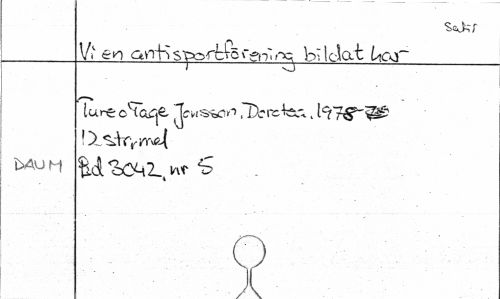 Satir
Vi en antisportförening bildat har
Ture o Tage Jonsson, Dorotea, 1978
12 str, mel
DAUM Bd 3042, nr 5